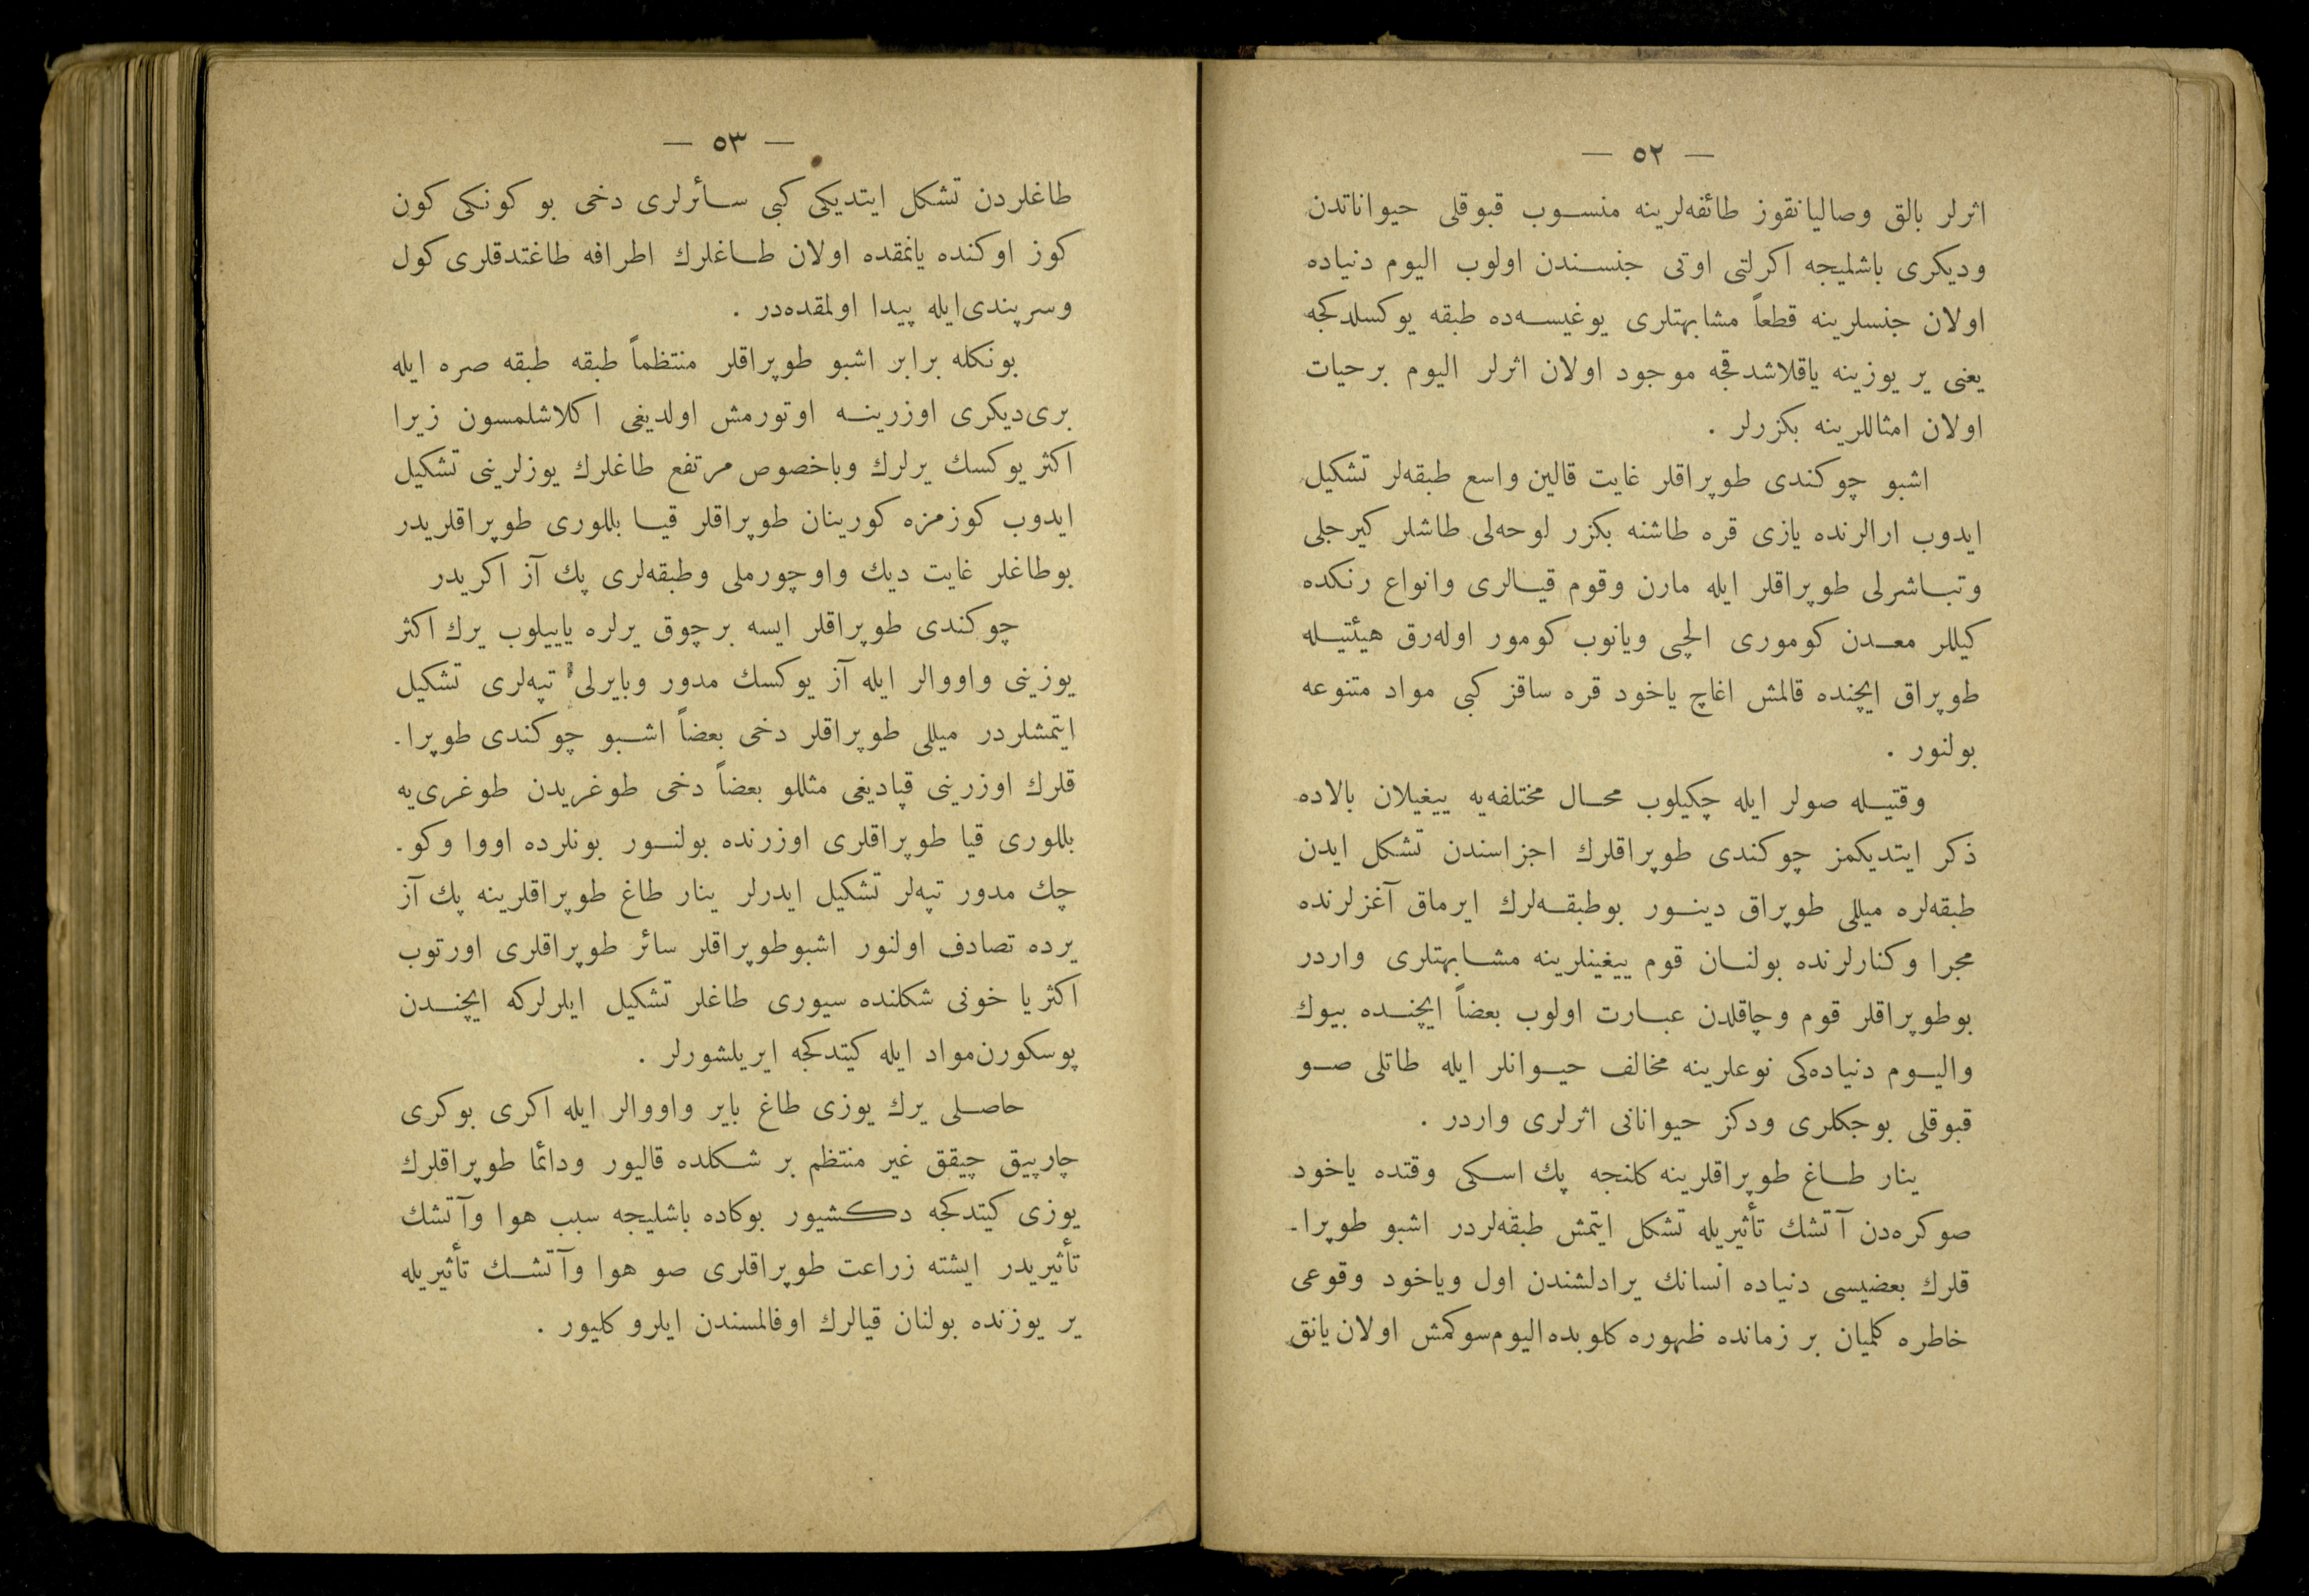 — ٥٢ —
اثرلر بالق وصاليانقوز طائفه‌لرينه منسوب قبوقلى حيواناتدن
وديكرى باشليجه اكرلتى اوتى جنسندن اولوب اليوم دنياده
اولان جنسلرينه قطعاً مشابهتلرى يوغيسه‌ده طبقه يوكسلدكجه
يعنى ير يوزينه ياقلاشدقجه موجود اولان اثرلر اليوم برحيات
اولان امثاللرينه بكزرلر .
اشبو چوكندى طوپراقلر غايت قالين واسع طبقه‌لر تشكيل
ايدوب ارالرنده يازى قره طاشنه بكزر لوحه‌لى طاشلر كيرجلى
وتباشرلى طوپراقلر ايله مارن وقوم قيالرى وانواع رنكده
كيللر معدن كومورى الچى ويانوب كومور اوله‌رق هيئتيله
طوپراق ايچنده قالمش اغاچ ياخود قره ساقز كبى مواد متنوعه
بولنور .
وقتيله صولر ايله چكيلوب محال مختلفه‌يه ييغيلان بالاده
ذكر ايتديكمز چوكندى طوپراقلرك اجزاسندن تشكل ايدن
طبقه‌لره ميللى طوپراق دينور بوطبقه‌لرك ايرماق آغزلرنده
مجرا وكنارلرنده بولنان قوم ييغينلرينه مشابهتلرى واردر
بوطوپراقلر قوم وچاقلدن عبارت اولوب بعضاً ايچنده بيوك
واليوم دنياده‌كى نوعلرينه مخالف حيوانلر ايله طاتلى صو
قبوقلى بوجكلرى ودكز حيواناتى اثرلرى واردر .
ينار طاغ طوپراقلرينه كلنجه پك اسكى وقتده ياخود
صوكره‌دن آتشك تأثيريله تشكل ايتمش طبقه‌لردر اشبو طوپرا-
قلرك بعضيسى دنياده انسانك يرادلشندن اول وياخود وقوعى
خاطره كلميان بر زمانده ظهوره كلوبده اليوم سوكمش اولان يانق
— ٥٣ —
طاغلردن تشكل ايتديكى كبى سائرلرى دخى بو كونكى كون
كوز اوكنده يانمقده اولان طاغلرك اطرافه طاغتدقلرى كول
وسرپندى‌ايله پيدا اولمقده‌در .
بونكله برابر اشبو طوپراقلر منتظماً طبقه طبقه صره ايله
برى‌ديكرى اوزرينه اوتورمش اولديغى اكلاشلمسون زيرا
اكثر يوكسك يرلرك وباخصوص مرتفع طاغلرك يوزلرينى تشكيل
ايدوب كوزمزه كورينان طوپراقلر قيا بللورى طوپراقلريدر
بوطاغلر غايت ديك واوچورملى وطبقه‌لرى پك آز اكريدر
چوكندى طوپراقلر ايسه برچوق يرلره ياييلوب يرك اكثر
يوزينى واووالر ايله آز يوكسك مدور وبايرلى تپه‌لرى تشكيل
ايتمشلردر ميللى طوپراقلر دخى بعضاً اشبو چوكندى طوپرا-
قلرك اوزرينى قپاديغى مثللو بعضاً دخى طوغريدن طوغرى‌يه
بللورى قيا طوپراقلرى اوزرنده بولنور بونلرده اووا وكو-
چك مدور تپه‌لر تشكيل ايدرلر ينار طاغ طوپراقلرينه پك آز
يرده تصادف اولنور اشبوطوپراقلر سائر طوپراقلرى اورتوب
اكثر يا خونى شكلنده سيورى طاغلر تشكيل ايلرلركه ايچندن
پوسكورن‌مواد ايله كيتدكجه ايريلشورلر .
حاصلى يرك يوزى طاغ باير واووالر ايله اكرى بوكرى
چارپيق چيقق غير منتظم بر شكلده قاليور ودائما طوپراقلرك
يوزى كيتدكجه دكشيور بوكاده باشليجه سبب هوا وآتشك
تأثيريدر ايشته زراعت طوپراقلرى صو هوا وآتشك تأثيريله
ير يوزنده بولنان قيالرك اوفالمسندن ايلرو كليور .